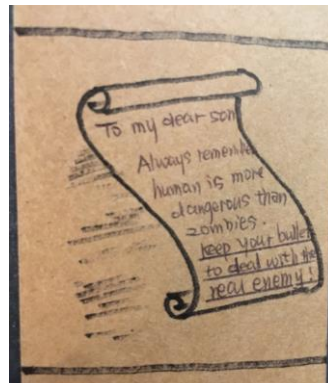 To my dear son
Always remember
human is more
dangerous than
zombies.
keep your bullet
to deal with the
real enemy!